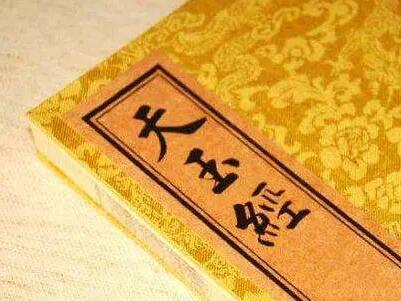 天玉經